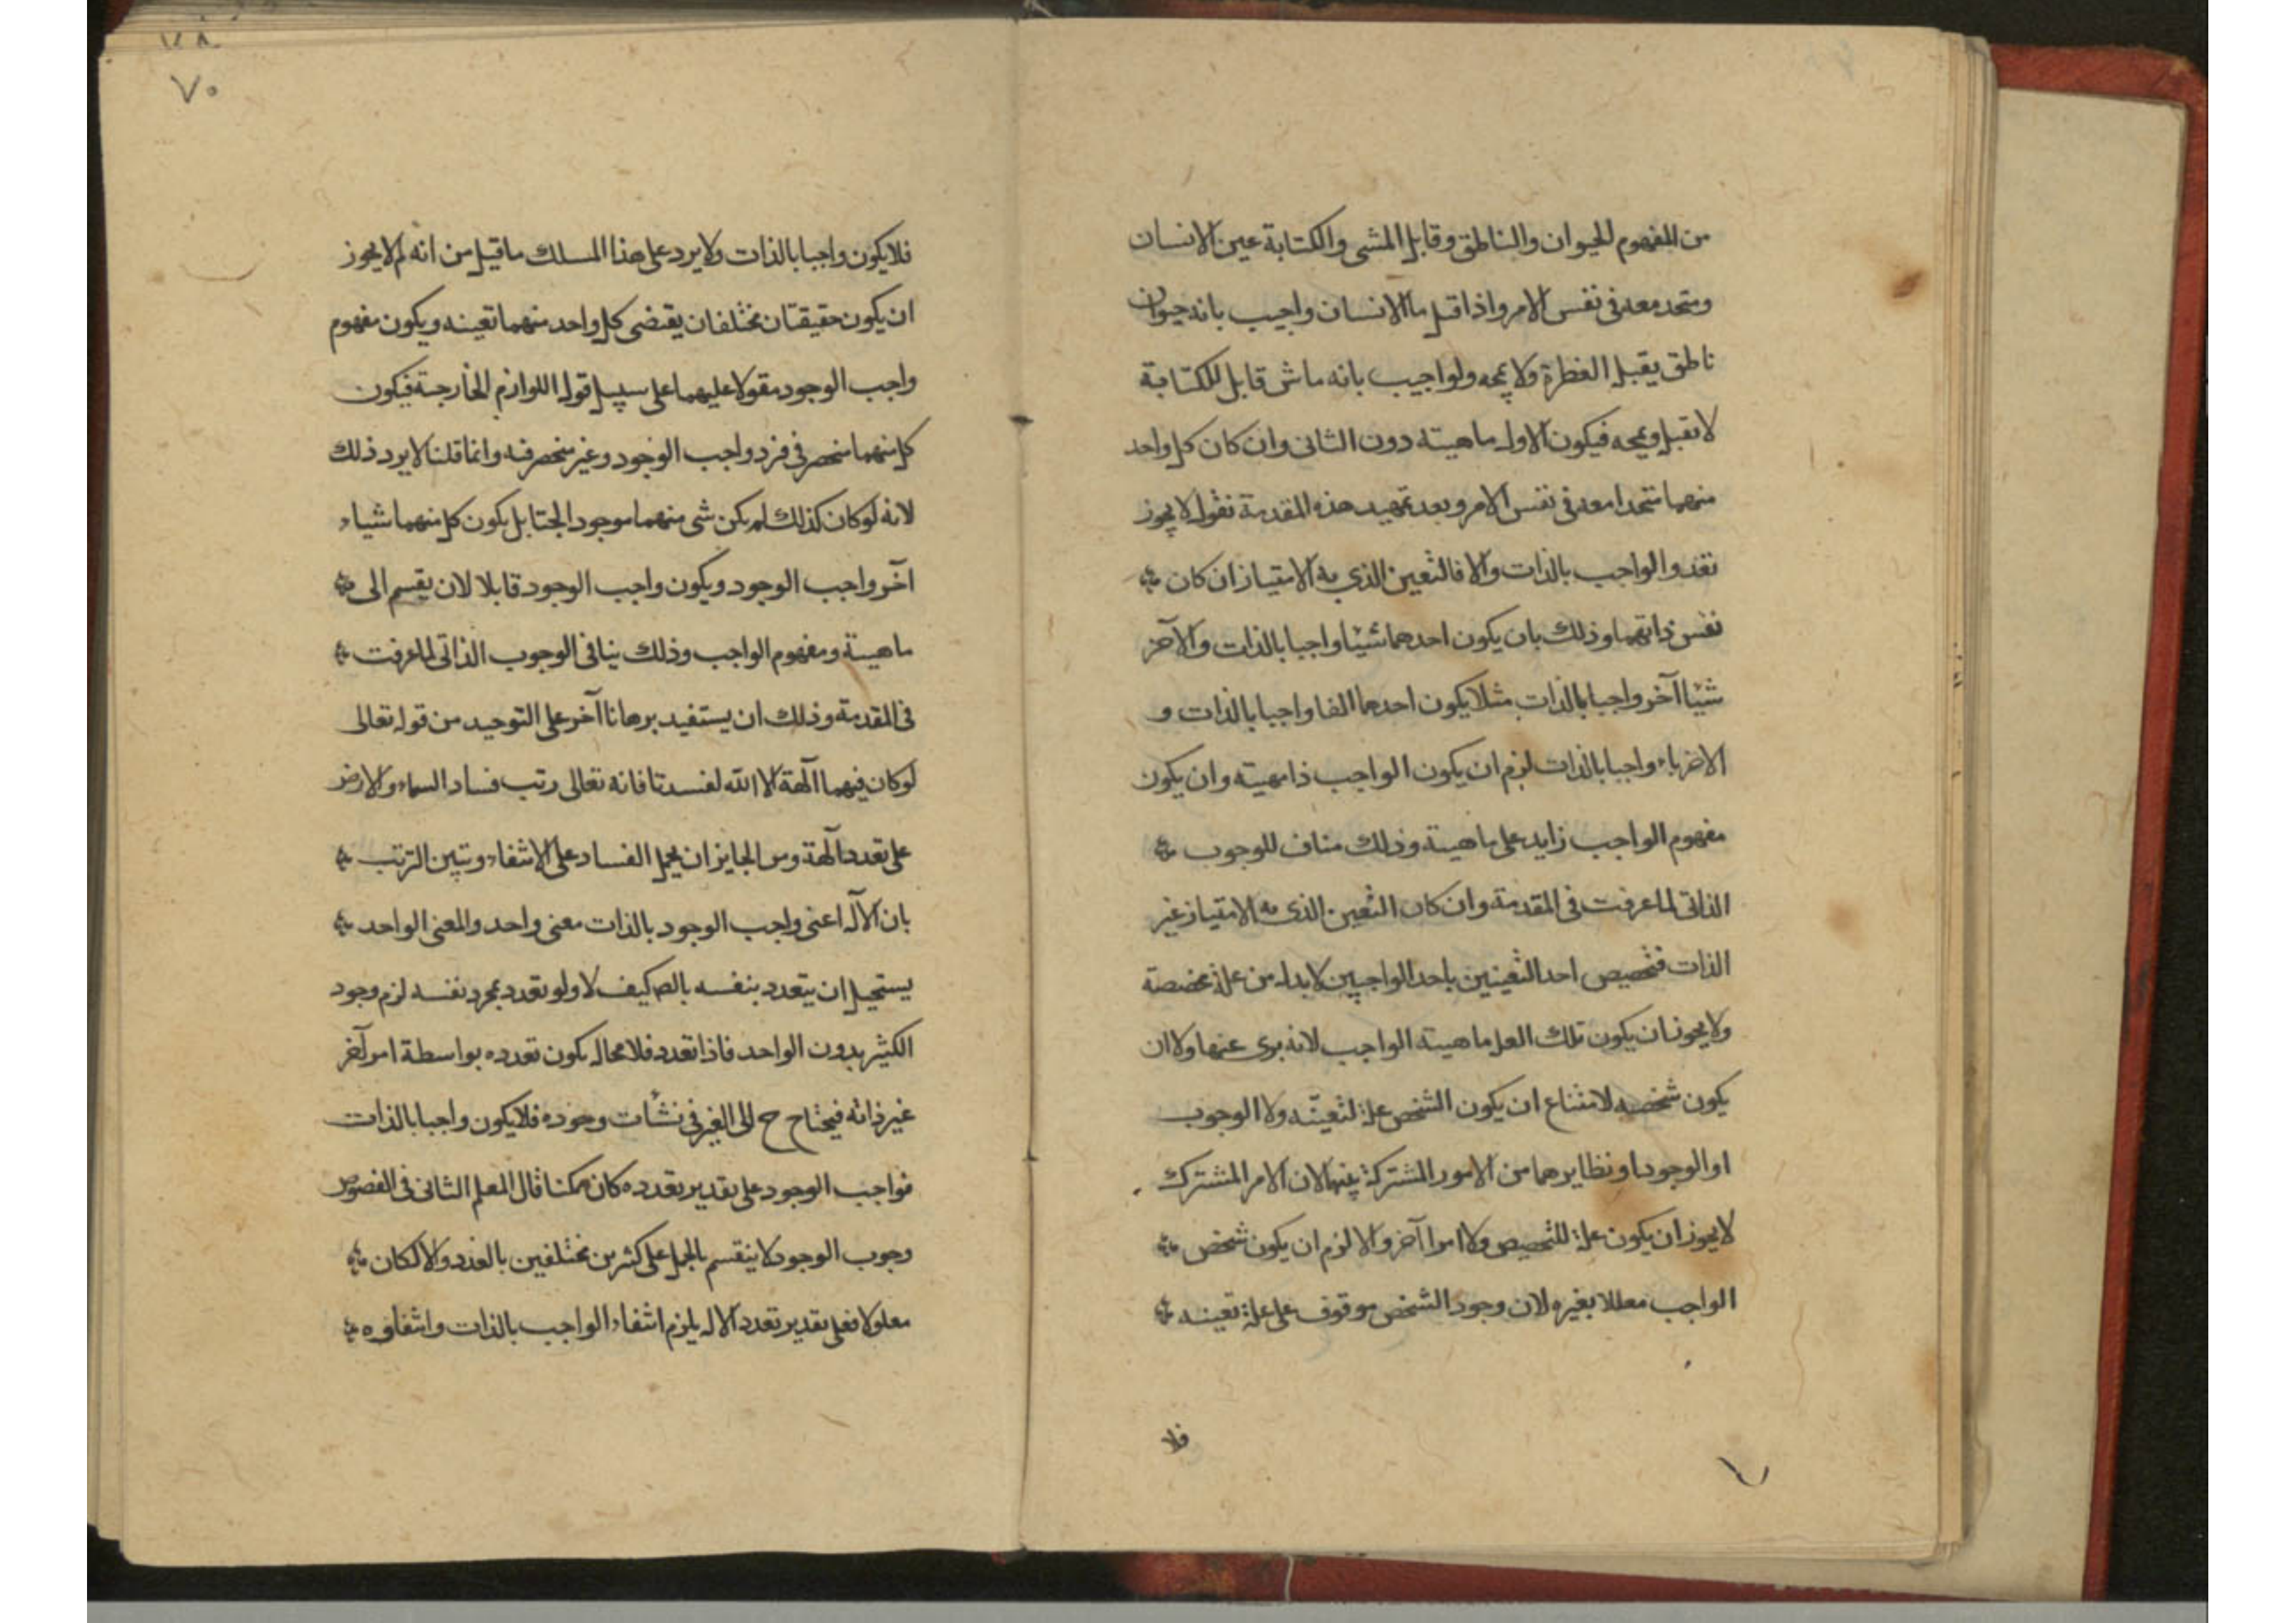 من المفهوم للحيوان والناطق وقابل المشى والكتابة عين الانسان
ومتحد معه فى نفس الامر واذا قيل ما الانسان واجيب بانه حيوان
ناطق يقبل الفطرة ولا يمجه ولو اجيب بانه ماش قابل للكتابة
لا تقبل ويمجه فيكون الاول ماهيته دون الثانى وان كان كل واحد
منهما متحدا معه فى نفس الامر وبعد تمهيد هذه المقدمة نقول لا يجوز
تعدد الواجب بالذات والا فالتعين الذي به الامتياز ان كان
نفس ذاتهما وذلك بان يكون احدهما شيئا واجبا بالذات والآخر
شيئا آخر واجبا بالذات مثلا يكون احدهما الفا واجبا بالذات و
الاخر باء واجبا بالذات لزم ان يكون الواجب ذا مهيته وان يكون
مفهوم الواجب زايد على ماهيته وذلك مناف للوجوب
الذاتى لما عرفت فى المقدمة وان كان التعين الذى به الامتياز غير
الذات فتخصيص احد التعينين باحد الواجبين لا بد له من علة مخصصة
ولا يجوز ان يكون تلك العلة ماهية الواجب لانه برى عنها ولا ان
يكون شخصه لامتناع ان يكون الشخص علة لتعينه ولا الوجوب
او الوجود او نظايرهما من الامور المشتركة بينهما لان الامر المشترك
لا يجوز ان يكون علة للتخصيص ولا امرا آخر والا لزم ان يكون شخص
الواجب معللا بغيره لان وجود الشخص موقوف على علة تعينه
فلا
٧٠
فلا يكون واجبا بالذات ولا يرد على هذا المسلك ما قيل من انه لم لا يجوز
ان يكون حقيقتان مختلفان يقتضى كل واحد منهما تعينه ويكون مفهوم
واجب الوجود مقولا عليهما على سبيل قول اللوازم الخارجة فيكون
كل منهما منحصر فى فرد واجب الوجود وغير منحصر فيه وانما قلنا لا يرد ذلك
لانه لو كان كذلك لم يكن شى منهما موجود الجتا بل يكون كل منهما شياء
آخر واجب الوجود ويكون واجب الوجود قابلا لان يقسم الى
ماهية ومفهوم الواجب وذلك ينافى الوجوب الذاتى لما عرفت
فى المقدمة وذلك ان يستفيد برهانا آخر على التوحيد من قوله تعالى
لو كان فيهما آلهة الا الله لفسدتا فانه تعالى رتب فساد السماء والارض
على تعدد آلهة ومن الجايز ان يحمل الفساد على الانتفاء وتبين الترتب
بان الآله اعنى واجب الوجود بالذات معنى واحد والمعنى الواحد
يستحيل ان يتعدد بنفسه بالضه كيف لا ولو تعدد بمجرد نفسه لزم وجود
الكثير بدون الواحد فاذا تعدد فلا محاله يكون تعدده بواسطة امر آخر
غير ذاته فيحتاج ح الى الغير فى نشأت وجوده فلا يكون واجبا بالذات
فواجب الوجود على تقدير تعدده كان ممكنا قال المعلم الثانى فى الفصوص
وجوب الوجود لا ينقسم بالحمل على كثرين مختلفين بالعدد والا لكان
معلولا فعلى تقدير تعدد الاله يلزم انتفاء الواجب بالذات وانتفاؤه